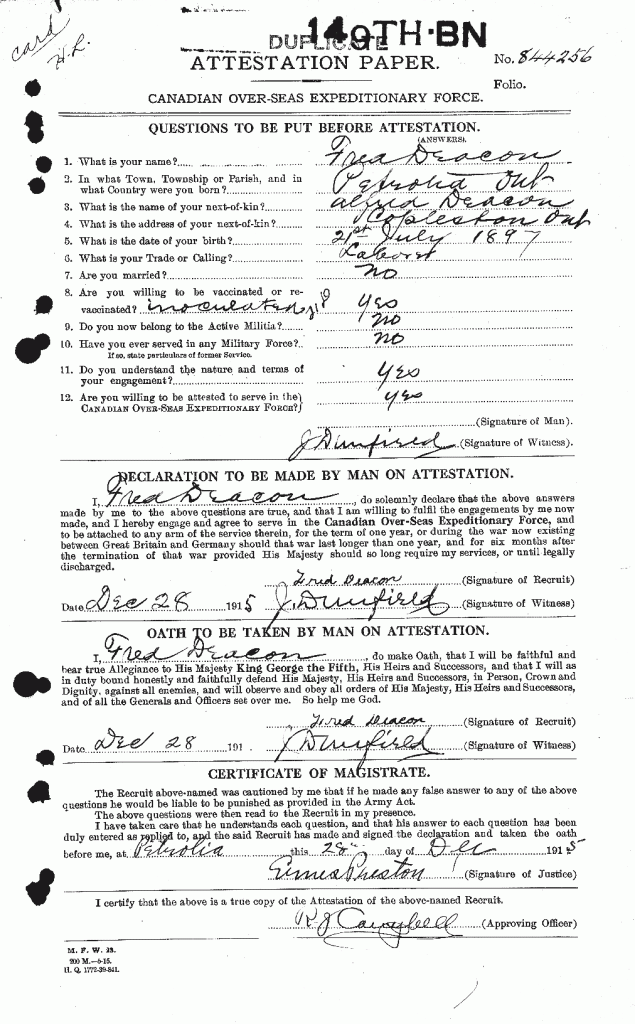 card
H.L.
149TH·BN
DUPLICATE
ATTESTATION PAPER.
No. 844256
Folio.
CANADIAN OVER-SEAS EXPEDITIONARY FORCE.
QUESTIONS TO BE PUT BEFORE ATTESTATION.
(ANSWERS).
1. What is your name? Fred Deacon
2. In what Town, Township or Parish, and in
what Country were you born? Petrolia Ont
3. What is the name of your next-of-kin? Alfred Deacon
4. What is the address of your next-of-kin? Copleston Ont
5. What is the date of your birth? 21st July 1897
6. What is your Trade or Calling? Laborer
7. Are you married? No
8. Are you willing to be vaccinated or re-
vaccinated? inoculated yes
9. Do you now belong to the Active Militia? No
10. Have you ever served in any Military Force? No
If so, state particulars of former Service.
11. Do you understand the nature and terms of
your engagement? yes
12. Are you willing to be attested to serve in the
CANADIAN OVER-SEAS EXPEDITIONARY FORCE? yes
(Signature of Man).
J Dunfield (Signature of Witness).
DECLARATION TO BE MADE BY MAN ON ATTESTATION.
I, Fred Deacon, do solemnly declare that the above answers
made by me to the above questions are true, and that I am willing to fulfil the engagements by me now
made, and I hereby engage and agree to serve in the Canadian Over-Seas Expeditionary Force, and
to be attached to any arm of the service therein, for the term of one year, or during the war now existing
between Great Britain and Germany should that war last longer than one year, and for six months after
the termination of that war provided His Majesty should so long require my services, or until legally
discharged.
Fred Deacon (Signature of Recruit)
Date Dec 28 1915 J Dunfield (Signature of Witness)
OATH TO BE TAKEN BY MAN ON ATTESTATION.
I, Fred Deacon, do make Oath, that I will be faithful and
bear true Allegiance to His Majesty King George the Fifth, His Heirs and Successors, and that I will as
in duty bound honestly and faithfully defend His Majesty, His Heirs and Successors, in Person, Crown and
Dignity, against all enemies, and will observe and obey all orders of His Majesty, His Heirs and Successors,
and of all the Generals and Officers set over me. So help me God.
Fred Deacon (Signature of Recruit)
Date Dec 28 191 J Dunfield (Signature of Witness)
CERTIFICATE OF MAGISTRATE.
The Recruit above-named was cautioned by me that if he made any false answer to any of the above
questions he would be liable to be punished as provided in the Army Act.
The above questions were then read to the Recruit in my presence.
I have taken care that he understands each question, and that his answer to each question has been
duly entered as replied to, and the said Recruit has made and signed the declaration and taken the oath
before me, at Petrolia this 28 day of Dec 1915
Preston (Signature of Justice)
I certify that the above is a true copy of the Attestation of the above-named Recruit.
R J Campbell (Approving Officer)
M. F. W. 23.
200 M.—8-15.
H. Q. 1772-39-841.